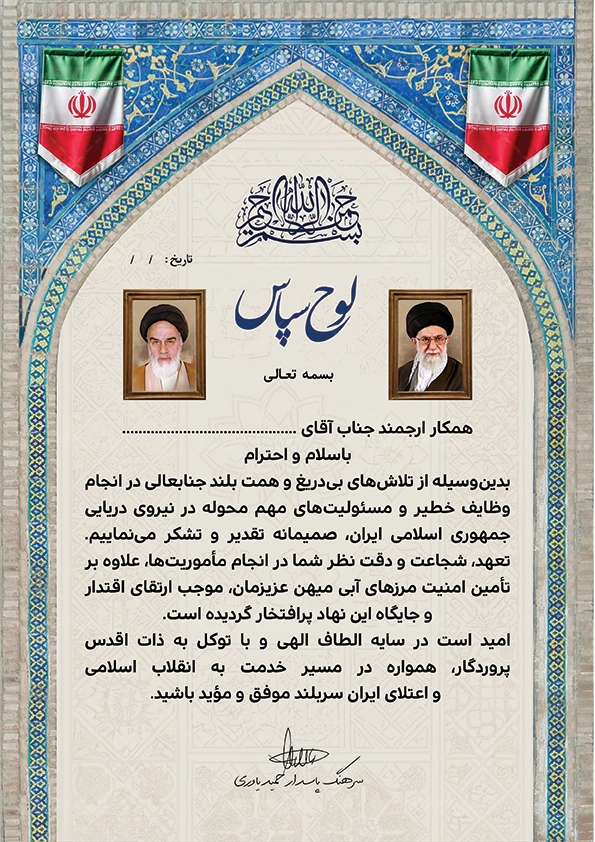 بسم الله الرحمن الرحیم
تاریخ: / /
لوح سپاس
بسمه تعالی
همکار ارجمند جناب آقای ............................................
باسلام و احترام
بدین‌وسیله از تلاش‌های بی‌دریغ و همت بلند جنابعالی در انجام
وظایف خطیر و مسئولیت‌های مهم محوله در نیروی دریایی
جمهوری اسلامی ایران، صمیمانه تقدیر و تشکر می‌نماییم.
تعهد، شجاعت و دقت نظر شما در انجام مأموریت‌ها، علاوه بر
تأمین امنیت مرزهای آبی میهن عزیزمان، موجب ارتقای اقتدار
و جایگاه این نهاد پرافتخار گردیده است.
امید است در سایه الطاف الهی و با توکل به ذات اقدس
پروردگار، همواره در مسیر خدمت به انقلاب اسلامی
و اعتلای ایران سربلند موفق و مؤید باشید.
سرهنگ پاسدار حمید یاوری